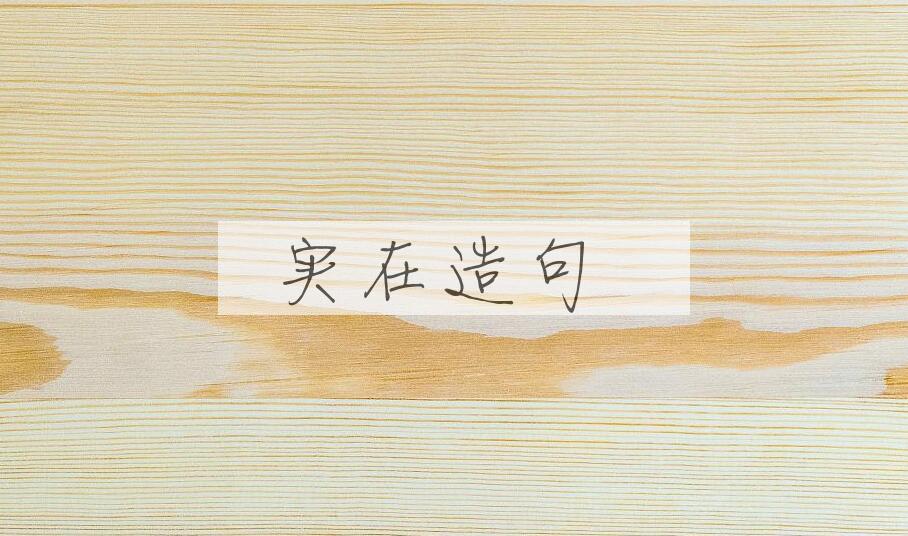 实在造句